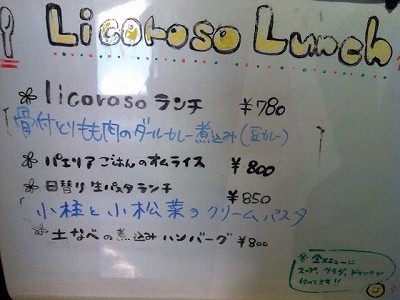 Licoroso Lunch
licoroso ランチ ¥780
骨付とりもも肉のダールカレー煮込み(豆カレー)
パエリアごはんのオムライス ¥800
日替り生パスタランチ ¥850
小柱と小松菜のクリームパスタ
土なべの煮込みハンバーグ ¥800
※全メニューに
スープ、サラダ、ドリンクが
付いてます!!